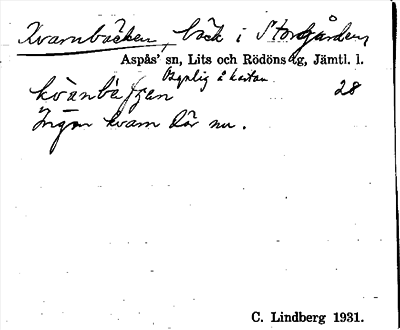 Kvarnbäcken, bäck i Storgården,
Aspås' sn, Lits och Rödöns tg, Jämtl. l.
Osynlig å kartan.
28
Ingen kvarn där nu.
C. Lindberg 1931.